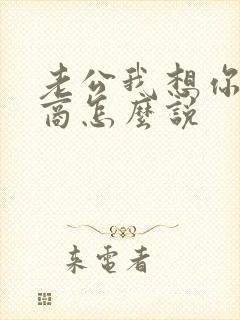 老公我想你
商怎麼說
来電者